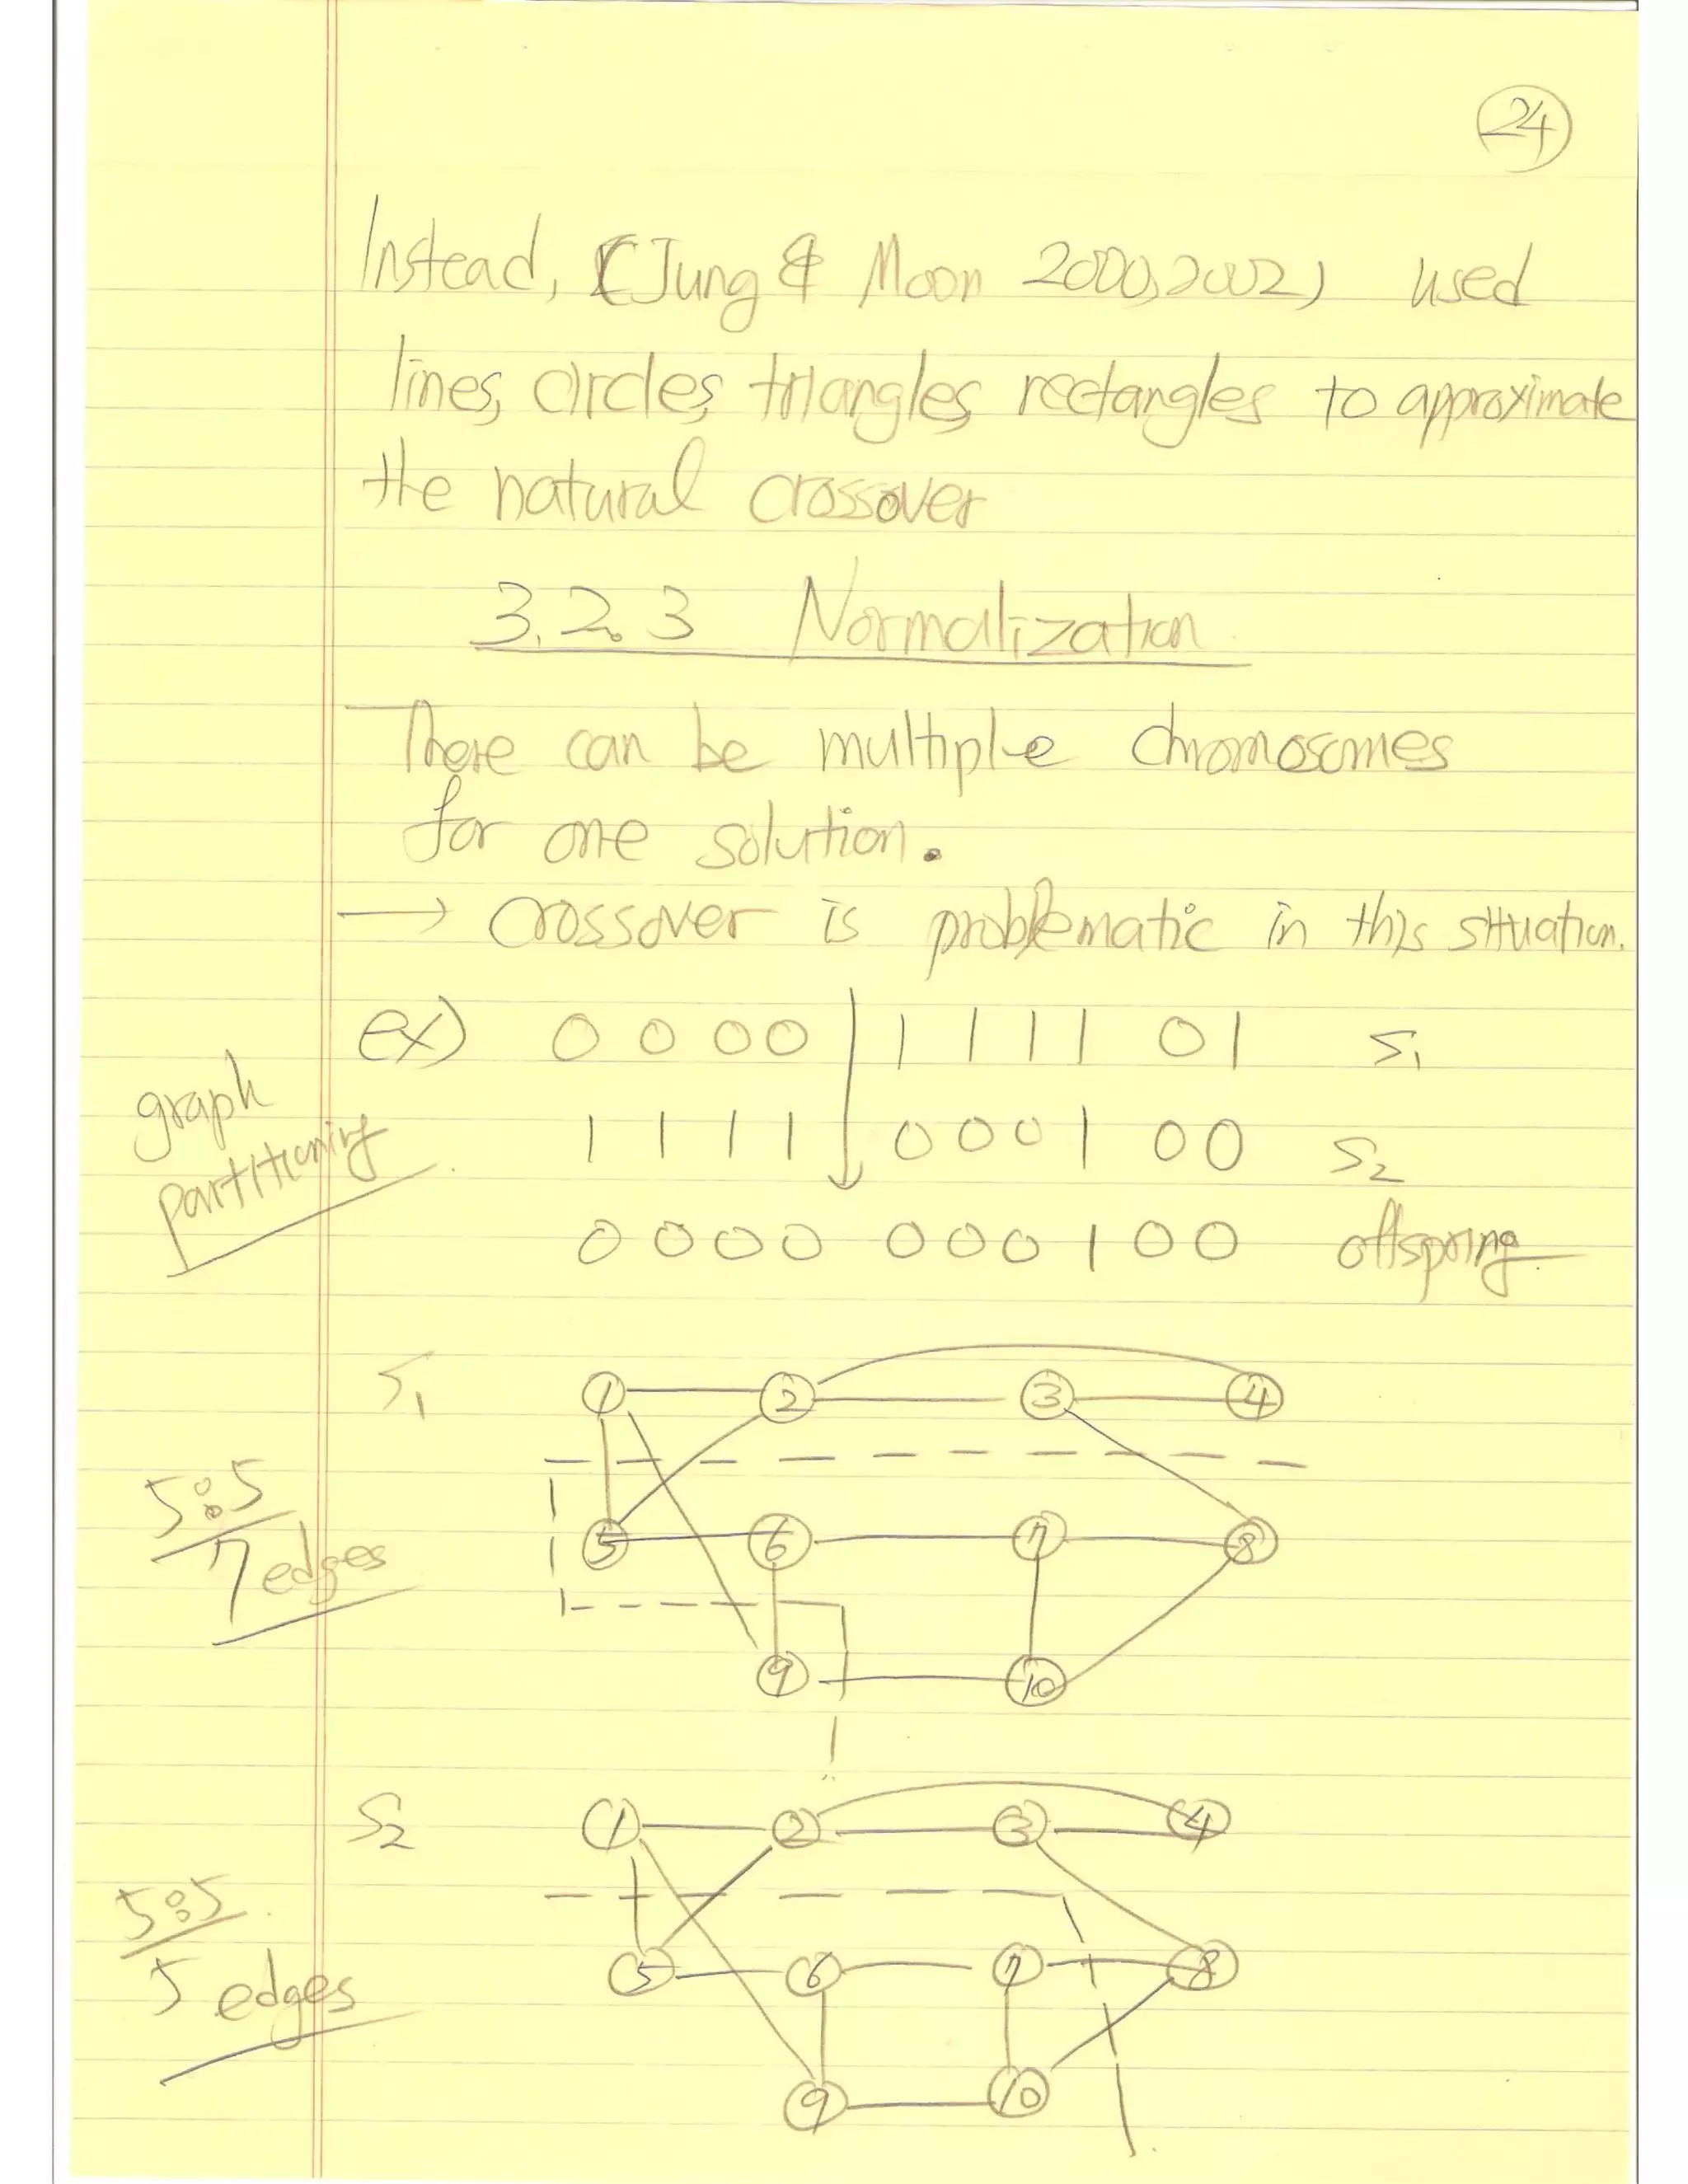 24
Instead, (Jung & Moon 2000, 2002) used
lines, circles, triangles, rectangles to approximate
the natural crossover
3.2.3 Normalization
There can be multiple chromosomes
for one solution.
→ crossover is problematic in this situation.
ex) 0 0 0 0 1 1 1 1 0 1 S1
graph
partitioning
1 1 1 1 0 0 0 1 0 0 S2
0 0 0 0 0 0 0 1 0 0 offspring
S1
1 2 3 4
5:5
7 edges
5 6 7 8
9 10
S2
1 2 3 4
5:5
5 edges
5 6 7 8
9 10